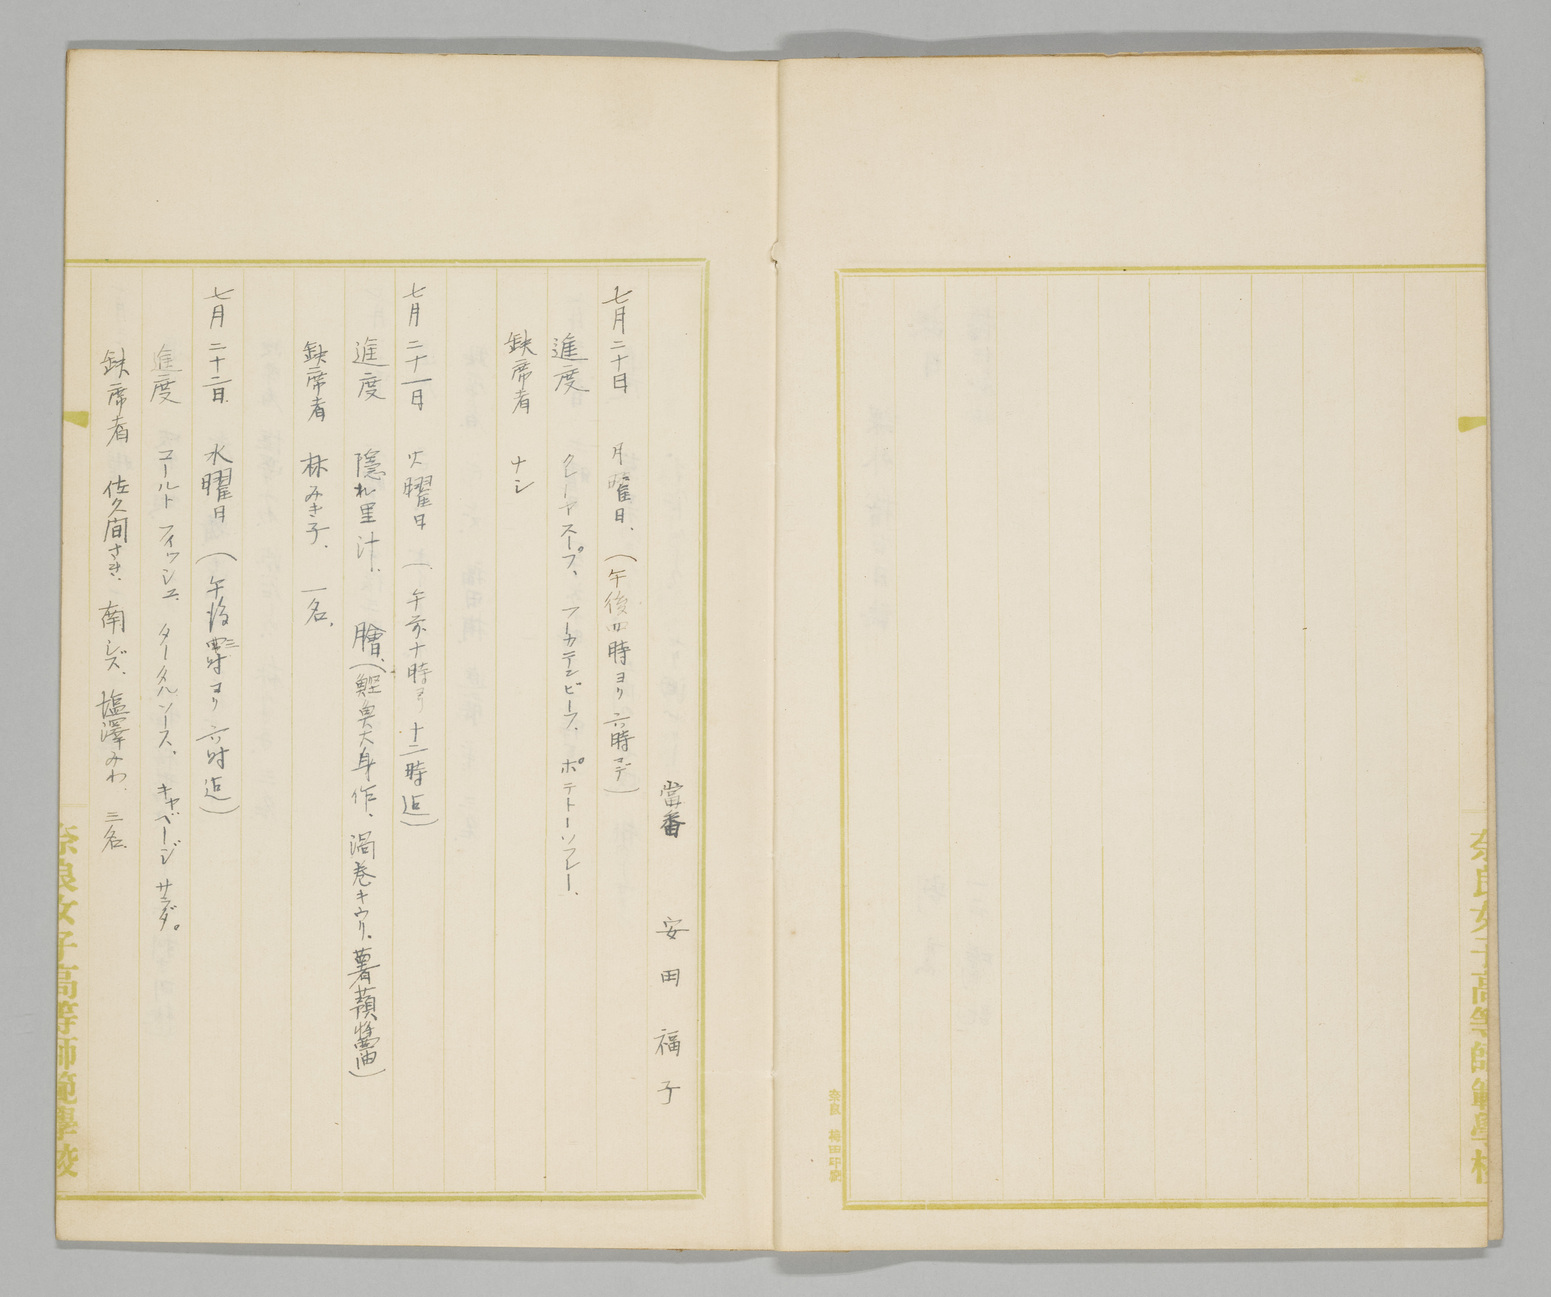 奈良女子高等師範學校
奈良 梅田印刷
當番 安田福子
七月二十日 月曜日、(午後四時ヨリ六時マデ)
進度 クレーヤスープ、フーカデンビーフ、ポテトーソフレー、
鉄席者 ナシ
七月二十一日 火曜日 (午前十時ヨリ十二時迄)
進度 隠れ里汁、膾、(鰹魚大身作、渦巻キウリ、薯蕷醬油)
鉄席者 林みき子、一名、
七月二十二日 水曜日 (午後三時ヨリ六時迄)
進度 コールトフィッシュ、タータルソース、キャベージサラダ。
鉄席者 佐久間さき、南シズ、塩澤みわ、三名
奈良女子高等師範學校